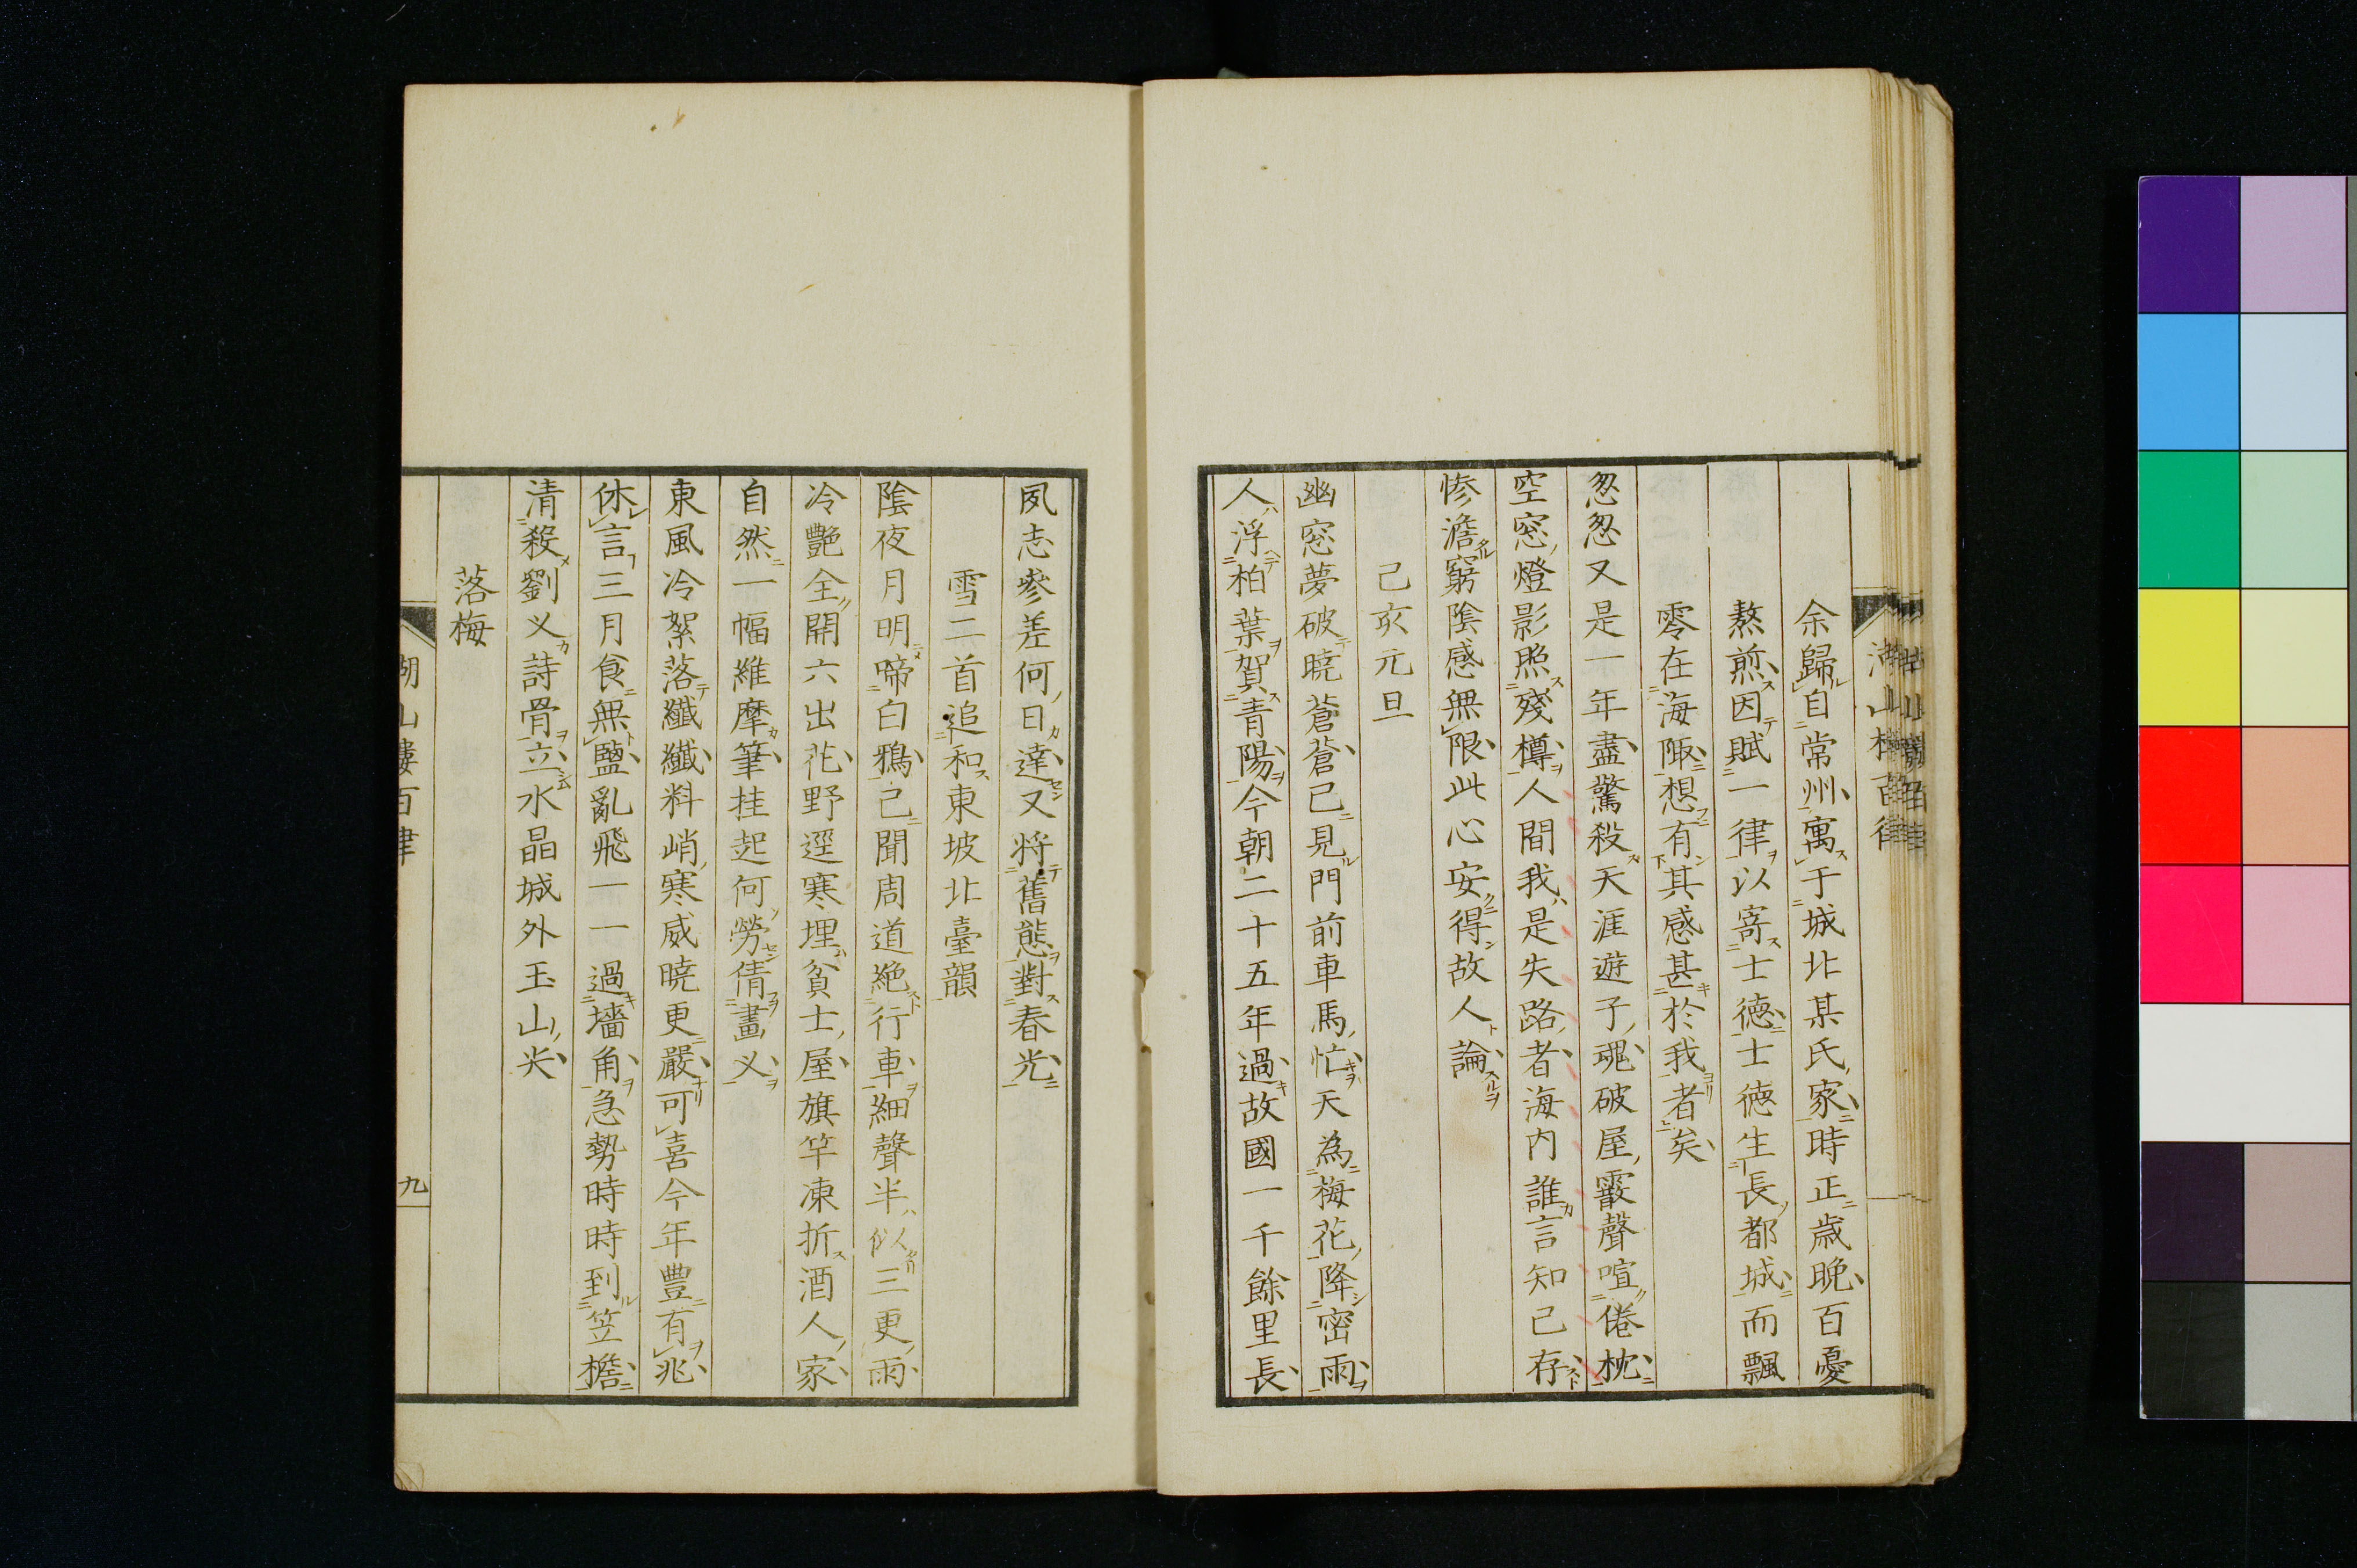 余歸自常州寓于城北某氏家時正歳晩百憂
熬煎因賦一律以寄士徳士徳生長都城而飄
零在海陬想有其感甚於我者矣
忽忽又是一年盡驚殺天涯遊子魂破屋霰聲喧倦枕
空窓燈影照殘樽人間我是失路者海内誰言知己存
惨澹窮陰感無限此心安得故人論
己亥元旦
幽窓夢破曉蒼蒼已見門前車馬忙天為梅花降密雨
人浮柏葉賀青陽今朝二十五年過故國一千餘里長
夙志參差何日達又將舊態對春光
雪二首追和東坡北臺韻
陰夜月明啼白鴉已聞周道絶行車細聲半似三更雨
冷艶全開六出花野逕寒埋貧士屋旗竿凍折酒人家
自然一幅維摩筆挂起何勞倩畫叉
東風冷絮落纖纖料峭寒威曉更嚴可喜今年豊有兆
休言三月食無鹽亂飛一一過墻角急勢時時到笠檐
清殺劉叉詩骨立水晶城外玉山尖
落梅
湖山樓百律
九